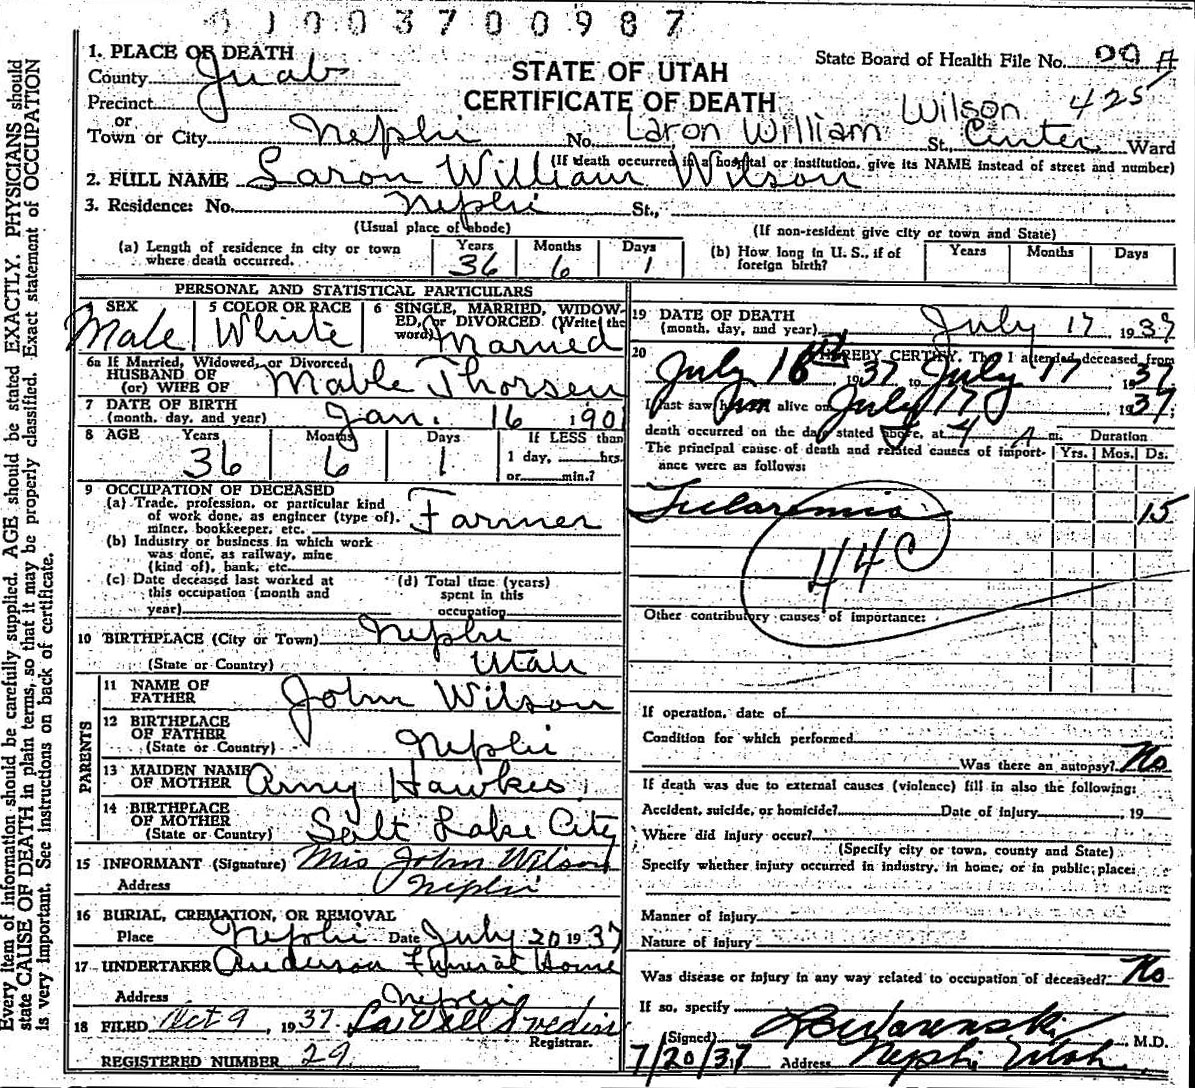 01003700987
1. PLACE OF DEATH
County Juab
STATE OF UTAH
State Board of Health File No. 00 A
Precinct
CERTIFICATE OF DEATH
Wilson 425
or
Town or City Nephi No. Laron William St., Center Ward
(If death occurred in a hospital or institution, give its NAME instead of street and number)
2. FULL NAME Laron William Wilson
3. Residence: No. Nephi St.,
(Usual place of abode) (If non-resident give city or town and State)
(a) Length of residence in city or town where death occurred. Years 36 Months 6 Days 1
(b) How long in U. S., if of foreign birth? Years Months Days
PERSONAL AND STATISTICAL PARTICULARS
4 SEX 5 COLOR OR RACE 6 SINGLE, MARRIED, WIDOW-
ED, or DIVORCED (Write the
word)
Male White Married
6a If Married, Widowed, or Divorced
HUSBAND OF
(or) WIFE OF Mable Thorsen
7 DATE OF BIRTH
(month, day, and year) Jan. 16 1901
8 AGE Years Months Days If LESS than
36 6 1 1 day, hrs.
or min.?
9 OCCUPATION OF DECEASED
(a) Trade, profession, or particular kind
of work done, as engineer (type of),
miner, bookkeeper, etc. Farmer
(b) Industry or business in which work
was done, as railway, mine
(kind of), bank, etc.
(c) Date deceased last worked at
this occupation (month and
year)
(d) Total time (years)
spent in this
occupation
10 BIRTHPLACE (City or Town) Nephi
(State or Country) Utah
PARENTS
11 NAME OF
FATHER John Wilson
12 BIRTHPLACE
OF FATHER
(State or Country) Nephi
13 MAIDEN NAME
OF MOTHER Amy Hawkes
14 BIRTHPLACE
OF MOTHER
(State or Country) Salt Lake City
15 INFORMANT (Signature) Mrs John Wilson
Address Nephi
16 BURIAL, CREMATION, OR REMOVAL
Place Nephi Date July 20 1937
17 UNDERTAKER Anderson Funeral Home
Address Nephi
18 FILED Oct 9, 1937
Registrar.
REGISTERED NUMBER 29
19 DATE OF DEATH
(month, day, and year) July 17 1937
20 I HEREBY CERTIFY, That I attended deceased from
July 16th 1937 to July 17 1937
I last saw him alive on July 17, 1937,
death occurred on the day stated above, at 4 A m. Duration
The principal cause of death and related causes of import-
ance were as follows: Yrs. Mos. Ds.
Tularemia 15
44C
Other contributory causes of importance:
If operation, date of
Condition for which performed
Was there an autopsy? No
If death was due to external causes (violence) fill in also the following:
Accident, suicide, or homicide? Date of injury , 19
Where did injury occur?
(Specify city or town, county and State)
Specify whether injury occurred in industry, in home, or in public place:
Manner of injury
Nature of injury
Was disease or injury in any way related to occupation of deceased? No
If so, specify
(Signed) M.D.
7/20/37 Address Nephi Utah
Every item of information should be carefully supplied. AGE should be stated EXACTLY. PHYSICIANS should
state CAUSE OF DEATH in plain terms, so that it may be properly classified. Exact statement of OCCUPATION
is very important. See instructions on back of certificate.